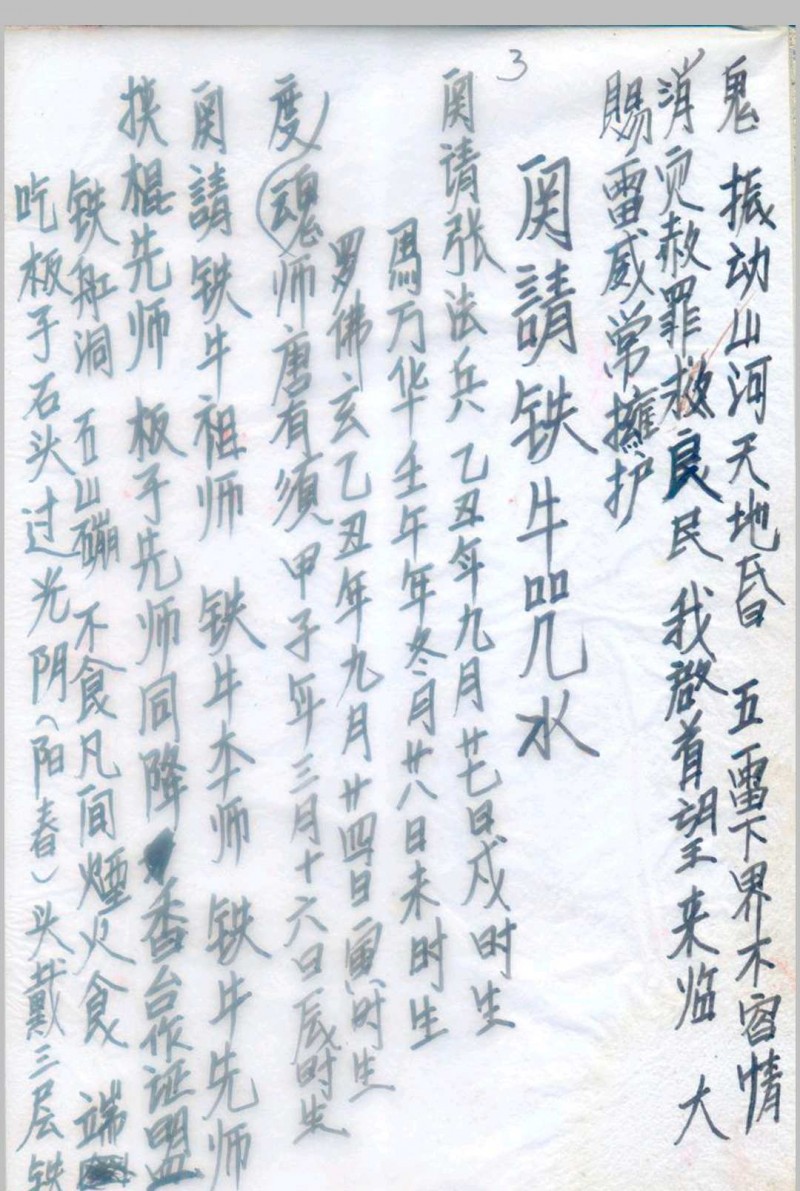 鬼 振动山河天地昏 五雷下界不容情
消灾赦罪救良民 我啓首望来临 大
賜雷威常擁护
3
関請铁牛咒水
関请张法兵 乙丑年九月廿七日戍时生
馬万华壬午年冬月廿八日未时生
罗佛玄乙丑年九月廿四日寅时生
度(魂师唐有須 甲子年三月十六日辰时生
関請铁牛祖师 铁牛本师 铁牛先师
挨棍先师 板子先师同降 香台作证盟
铁缸洞 五山磞 不食凡间煙火食 端
吃板子石头过光阴(阳春)头戴三层铁